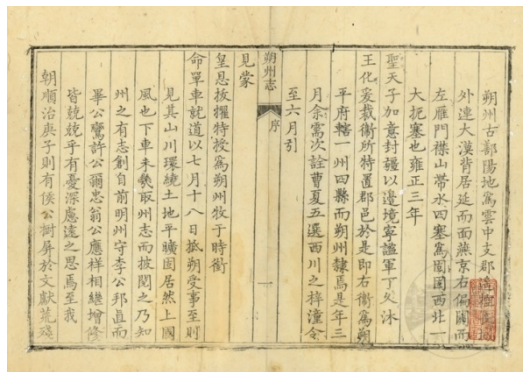 朔州古鄯陽地為雲中支郡
外連大漠背居延而面燕京右偏關而
左雁門襟山帶水四塞為固固西北一
大扼塞也雍正三年
聖天子加意封疆以邊境寧謐軍丁久沐
王化爰裁衛所特置郡邑於是即右衛為朔
平府轄一州四縣而朔州隸焉是年三
月余需次詮曹夏五選西川之梓潼令
至六月引
朔州志
序
一
見蒙
皇恩拔擢特授為朔州牧于時銜
命單車就道以七月十八日抵朔受事至則
見其山川環繞土地平曠固居然上國
風也下車未幾取州志而披閱之乃知
州之有志創自前明州守李公邦直而
畢公鸞許公爾忠翁公應祥相繼增修
皆兢兢乎有憂深慮遠之思焉至我
朝順治庚子則有侯公樹屏於文獻荒殘